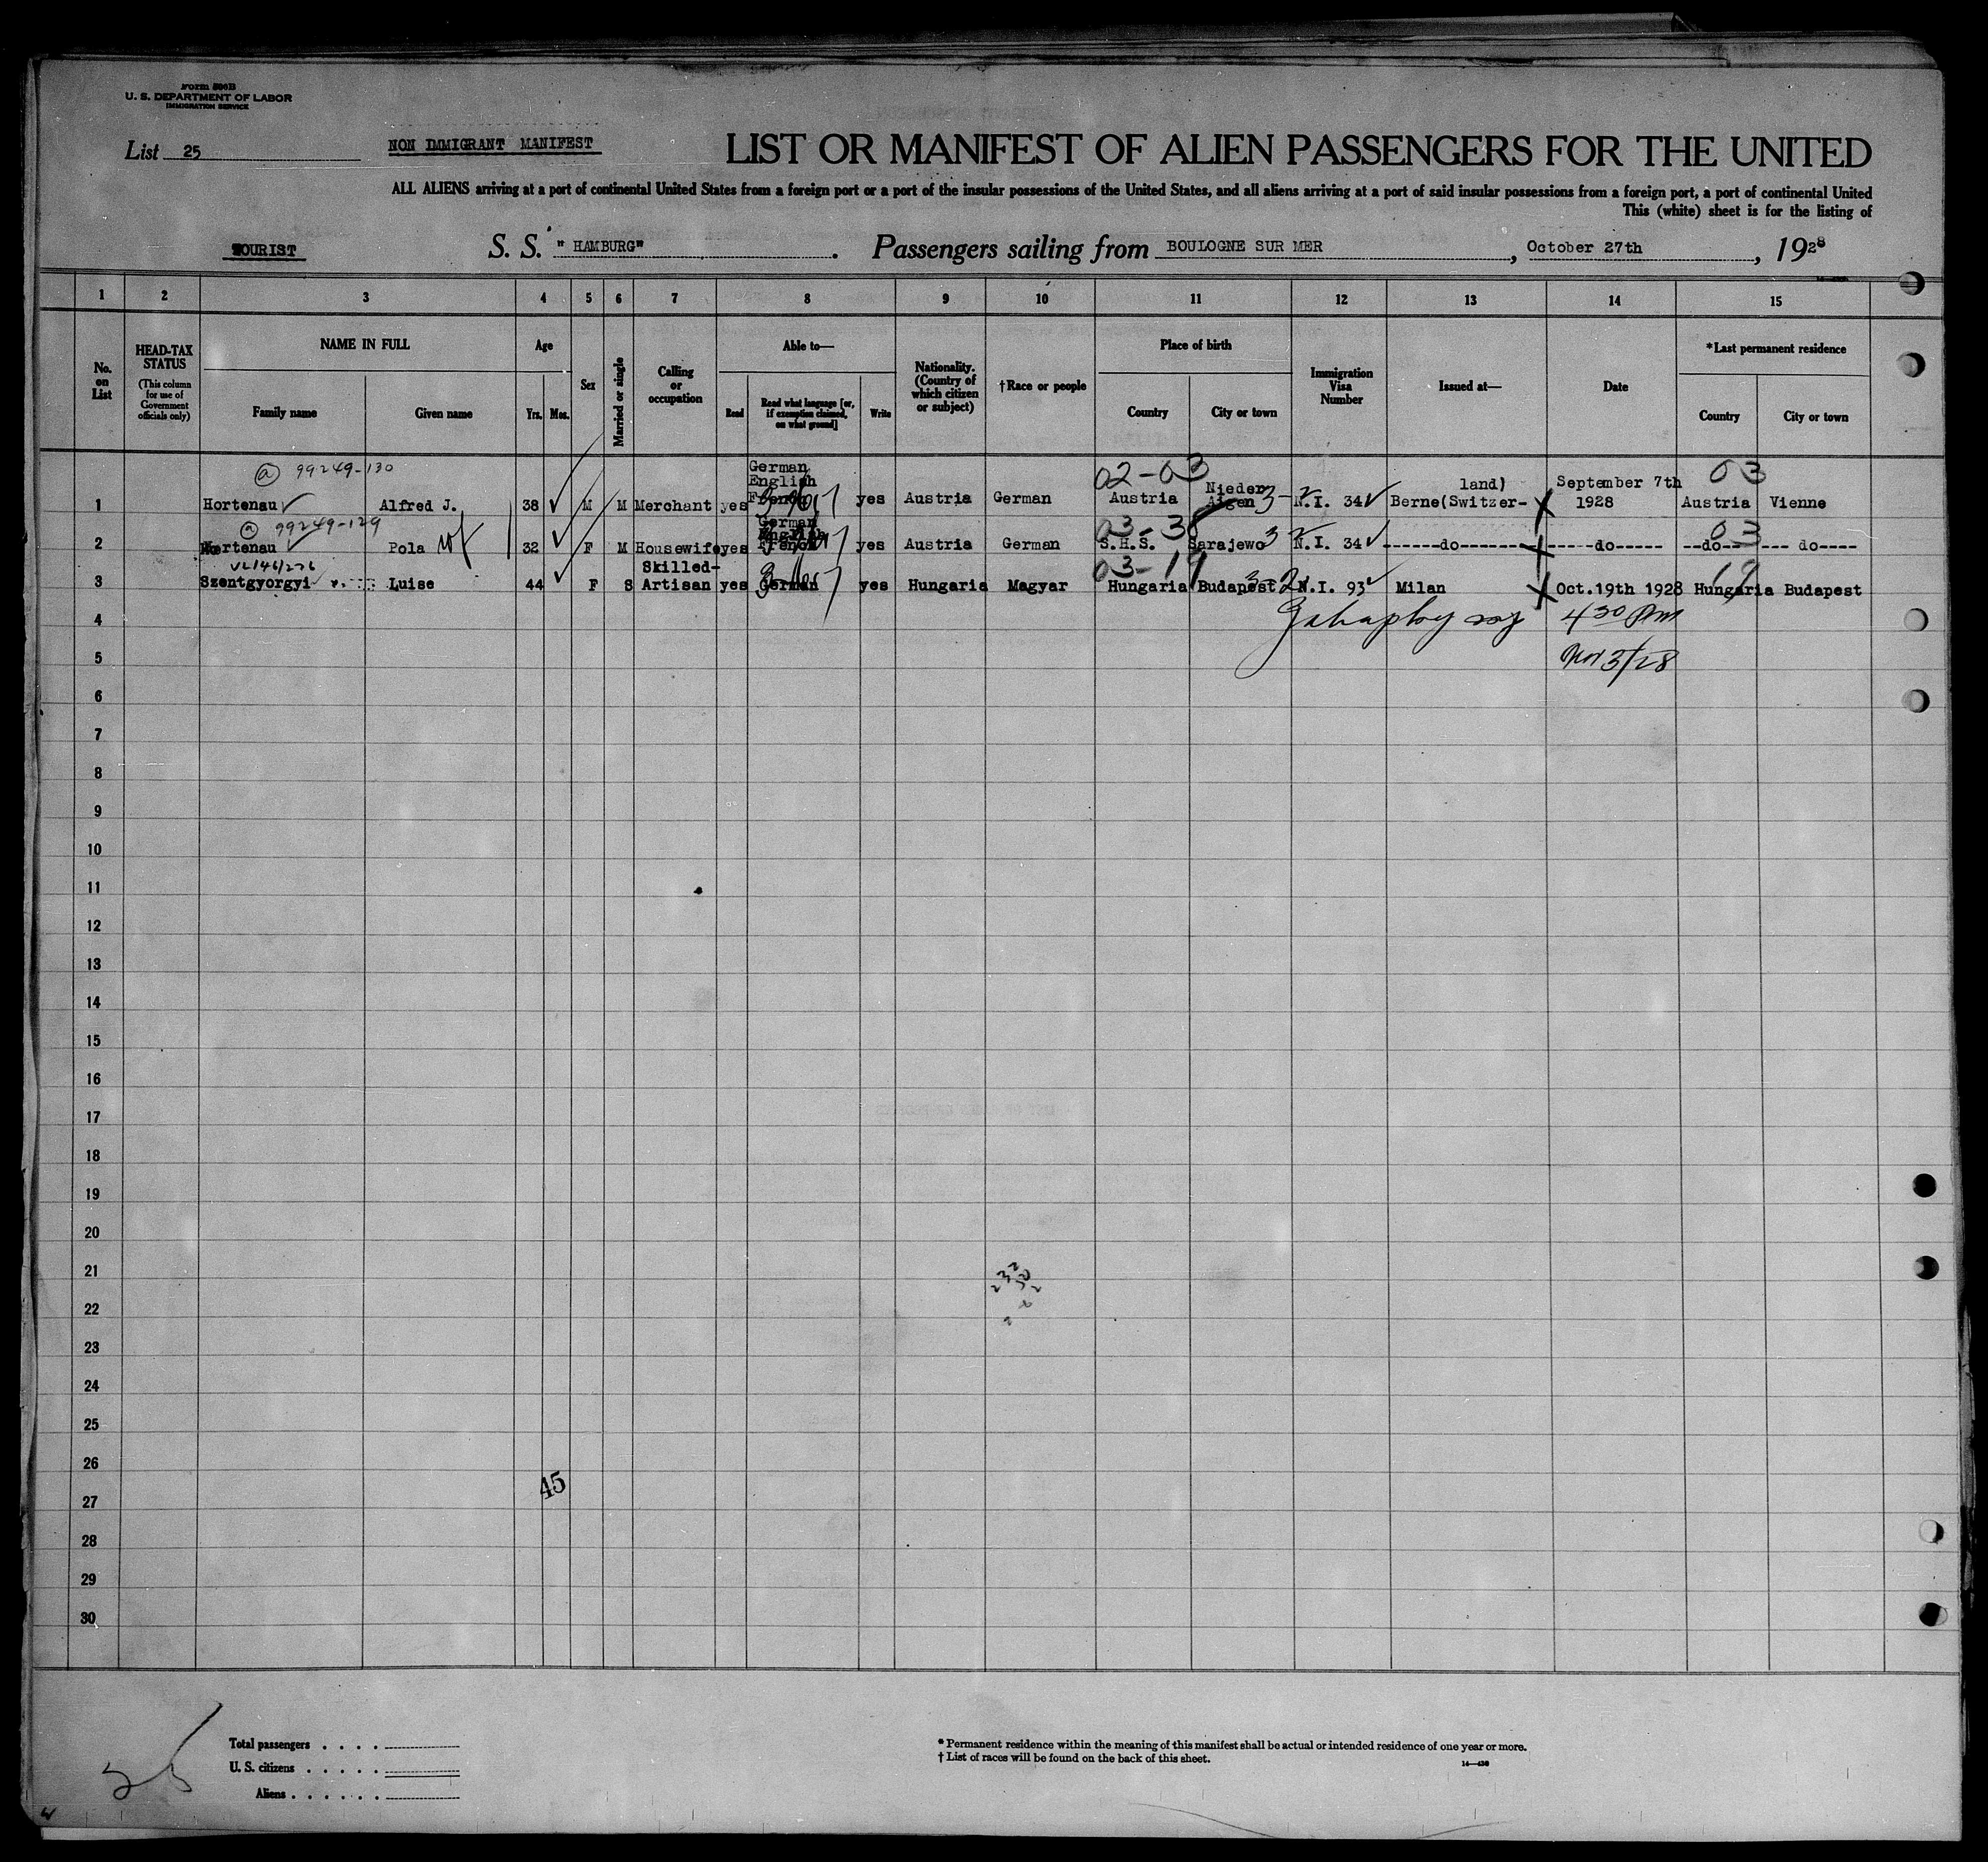 Form 500B
U. S. DEPARTMENT OF LABOR
IMMIGRATION SERVICE
List 25
NON IMMIGRANT MANIFEST
LIST OR MANIFEST OF ALIEN PASSENGERS FOR THE UNITED
ALL ALIENS arriving at a port of continental United States from a foreign port or a port of the insular possessions of the United States, and all aliens arriving at a port of said insular possessions from a foreign port, a port of continental United
This (white) sheet is for the listing of
TOURIST S. S. "HAMBURG". Passengers sailing from BOULOGNE SUR MER, October 27th, 1928
1 2 3 4 5 6 7 8 9 10 11 12 13 14 15
No. on List
HEAD-TAX STATUS
(This column for use of Government officials only)
NAME IN FULL
Family name Given name
Age
Yrs. Mos.
Sex
Married or single
Calling or occupation
Able to—
Read
Read what language [or, if exemption claimed, on what ground]
Write
Nationality. (Country of which citizen or subject)
†Race or people
Place of birth
Country City or town
Immigration Visa Number
Issued at—
Date
*Last permanent residence
Country City or town
(a) 99249-130 02-03 03
1 Hortenau Alfred J. 38 M M Merchant yes German English French yes Austria German Austria Nieder Aigen 3-2 N.I. 34 Berne(Switzer-land) September 7th 1928 Austria Vienne
(a) 99249-129 03-38 03
2 Hortenau Pola wf 32 F M Housewife yes German English French yes Austria German S.H.S. Sarajewo 3-2 N.I. 34 ------do------- -----do----- --do-- --- do----
VL146/276 03-19 19
3 Szentgyorgyi v. Luise 44 F S Skilled-Artisan yes German yes Hungaria Magyar Hungaria Budapest 3-2 N.I. 93 Milan Oct.19th 1928 Hungaria Budapest
4 4 30 Pm
5 Nov 3/28
6
7
8
9
10
11
12
13
14
15
16
17
18
19
20
21
22
23
24
25
26
45
27
28
29
30
Total passengers . . . .
U. S. citizens . . . . .
Aliens . . . . . .
* Permanent residence within the meaning of this manifest shall be actual or intended residence of one year or more.
† List of races will be found on the back of this sheet.
14—430